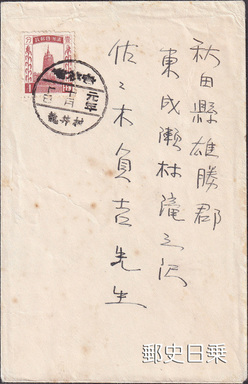 秋田縣雄勝郡
東成瀬村滝ノ沢
佐々木負吉先生
元年
龍井村
郵史日乗